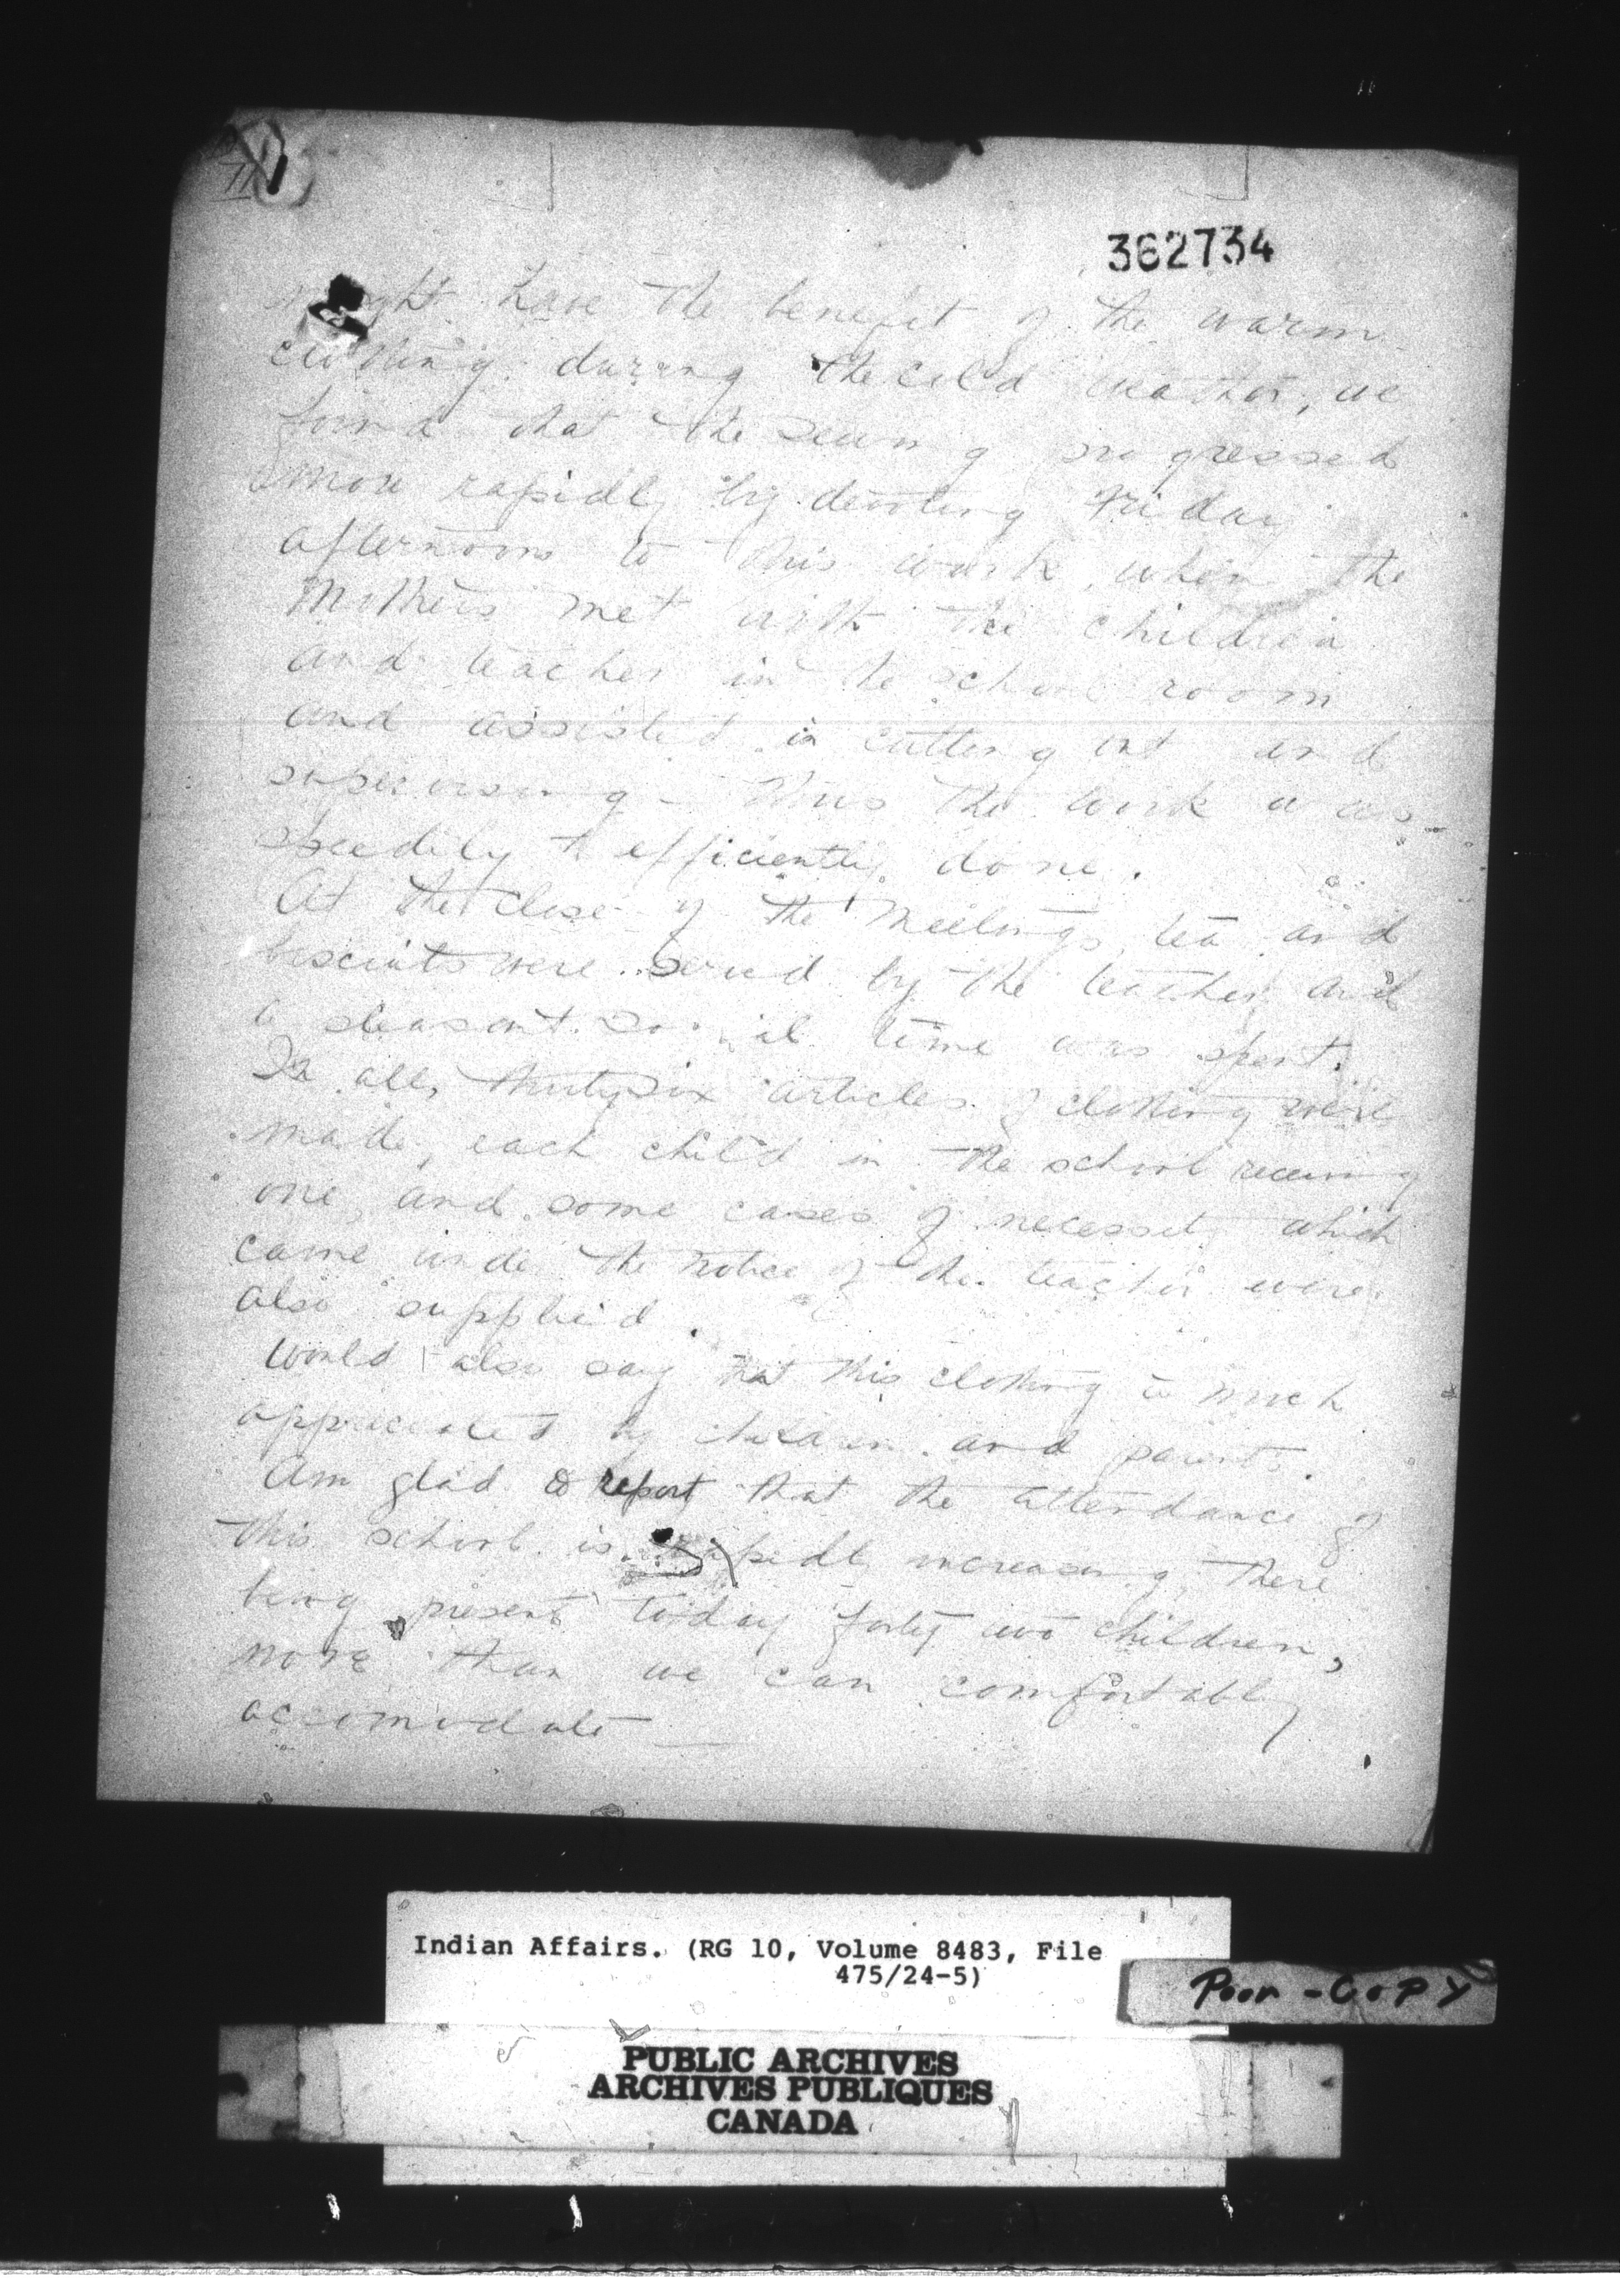 362734
might have the benefit of the warm
clothing during the cold weather, we
found that the sewing progressed
more rapidly by devoting Friday
afternoons to this work, when the
Mothers met with the children
and teacher in the school room
and assisted in cutting out and
supervising - Thus the work was
speedily & efficiently done.
At the close of the meetings, tea and
biscuits were served by the teacher and
a pleasant social time was spent.
In all, thirty six articles of clothing were
made, each child in the school receiving
one, and some cases of necessity which
came under the notice of the teacher were
also supplied.
Would also say that this clothing is much
appreciated by children and parents.
Am glad to report that the attendance of
this school is rapidly increasing, there
being present today forty two children,
more than we can comfortably
accomodate
Indian Affairs. (RG 10, Volume 8483, File
475/24-5)
Poor-Copy
PUBLIC ARCHIVES
ARCHIVES PUBLIQUES
CANADA